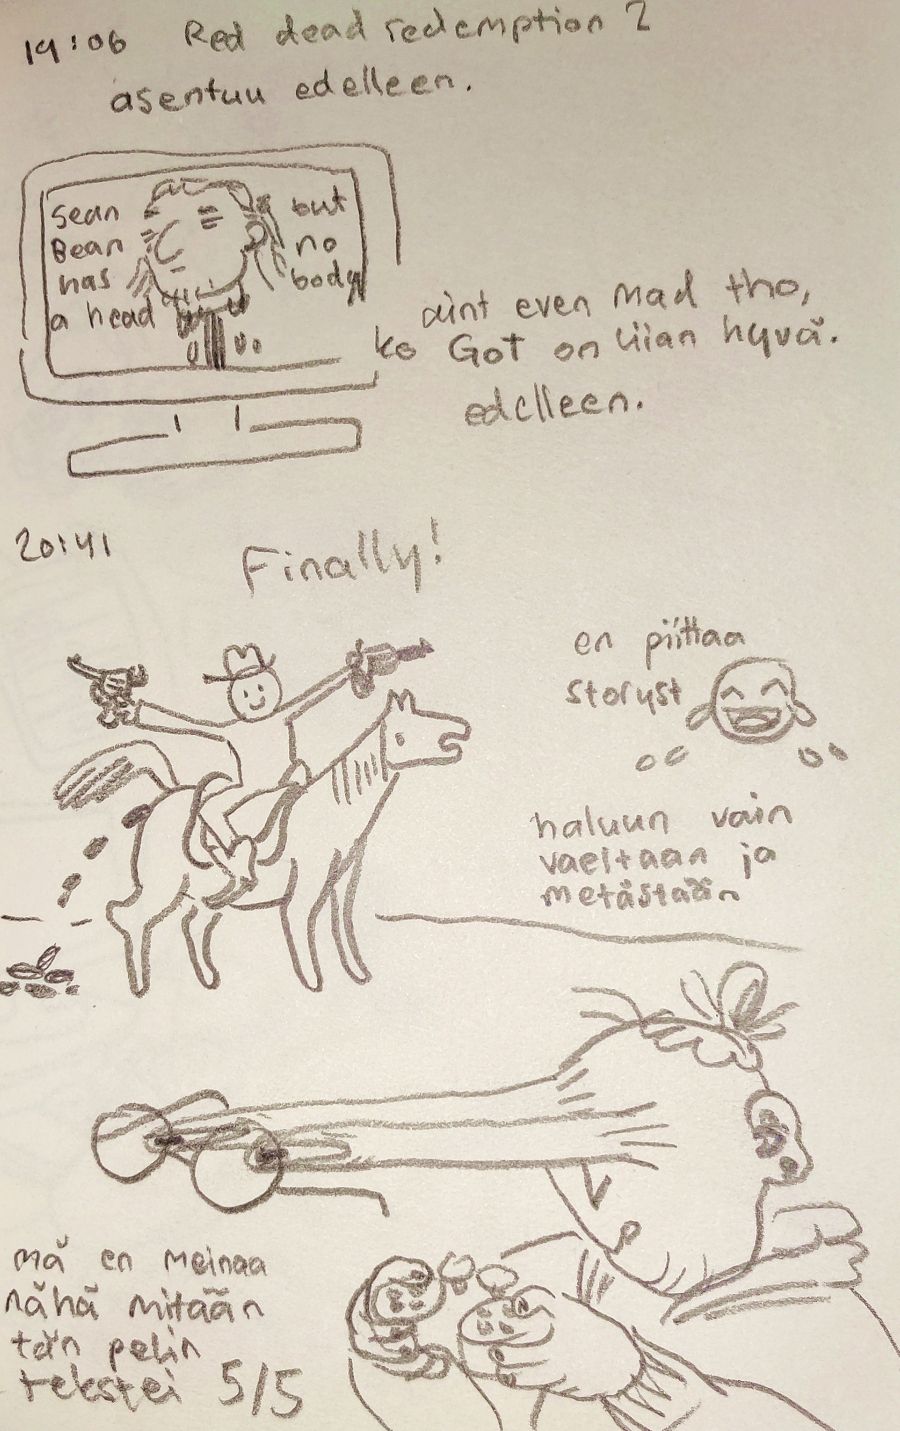 19:06 Red dead redemption 2
asentuu edelleen.
Sean
Bean
has
a head
but
no
body
aint even mad tho,
ko GoT on liian hyvä.
edelleen.
20:41
Finally!
en piittaa
storyst
haluun vain
vaeltaan ja
metästään
mä en meinaa
nähä mitään
tän pelin
tekstei 5/5